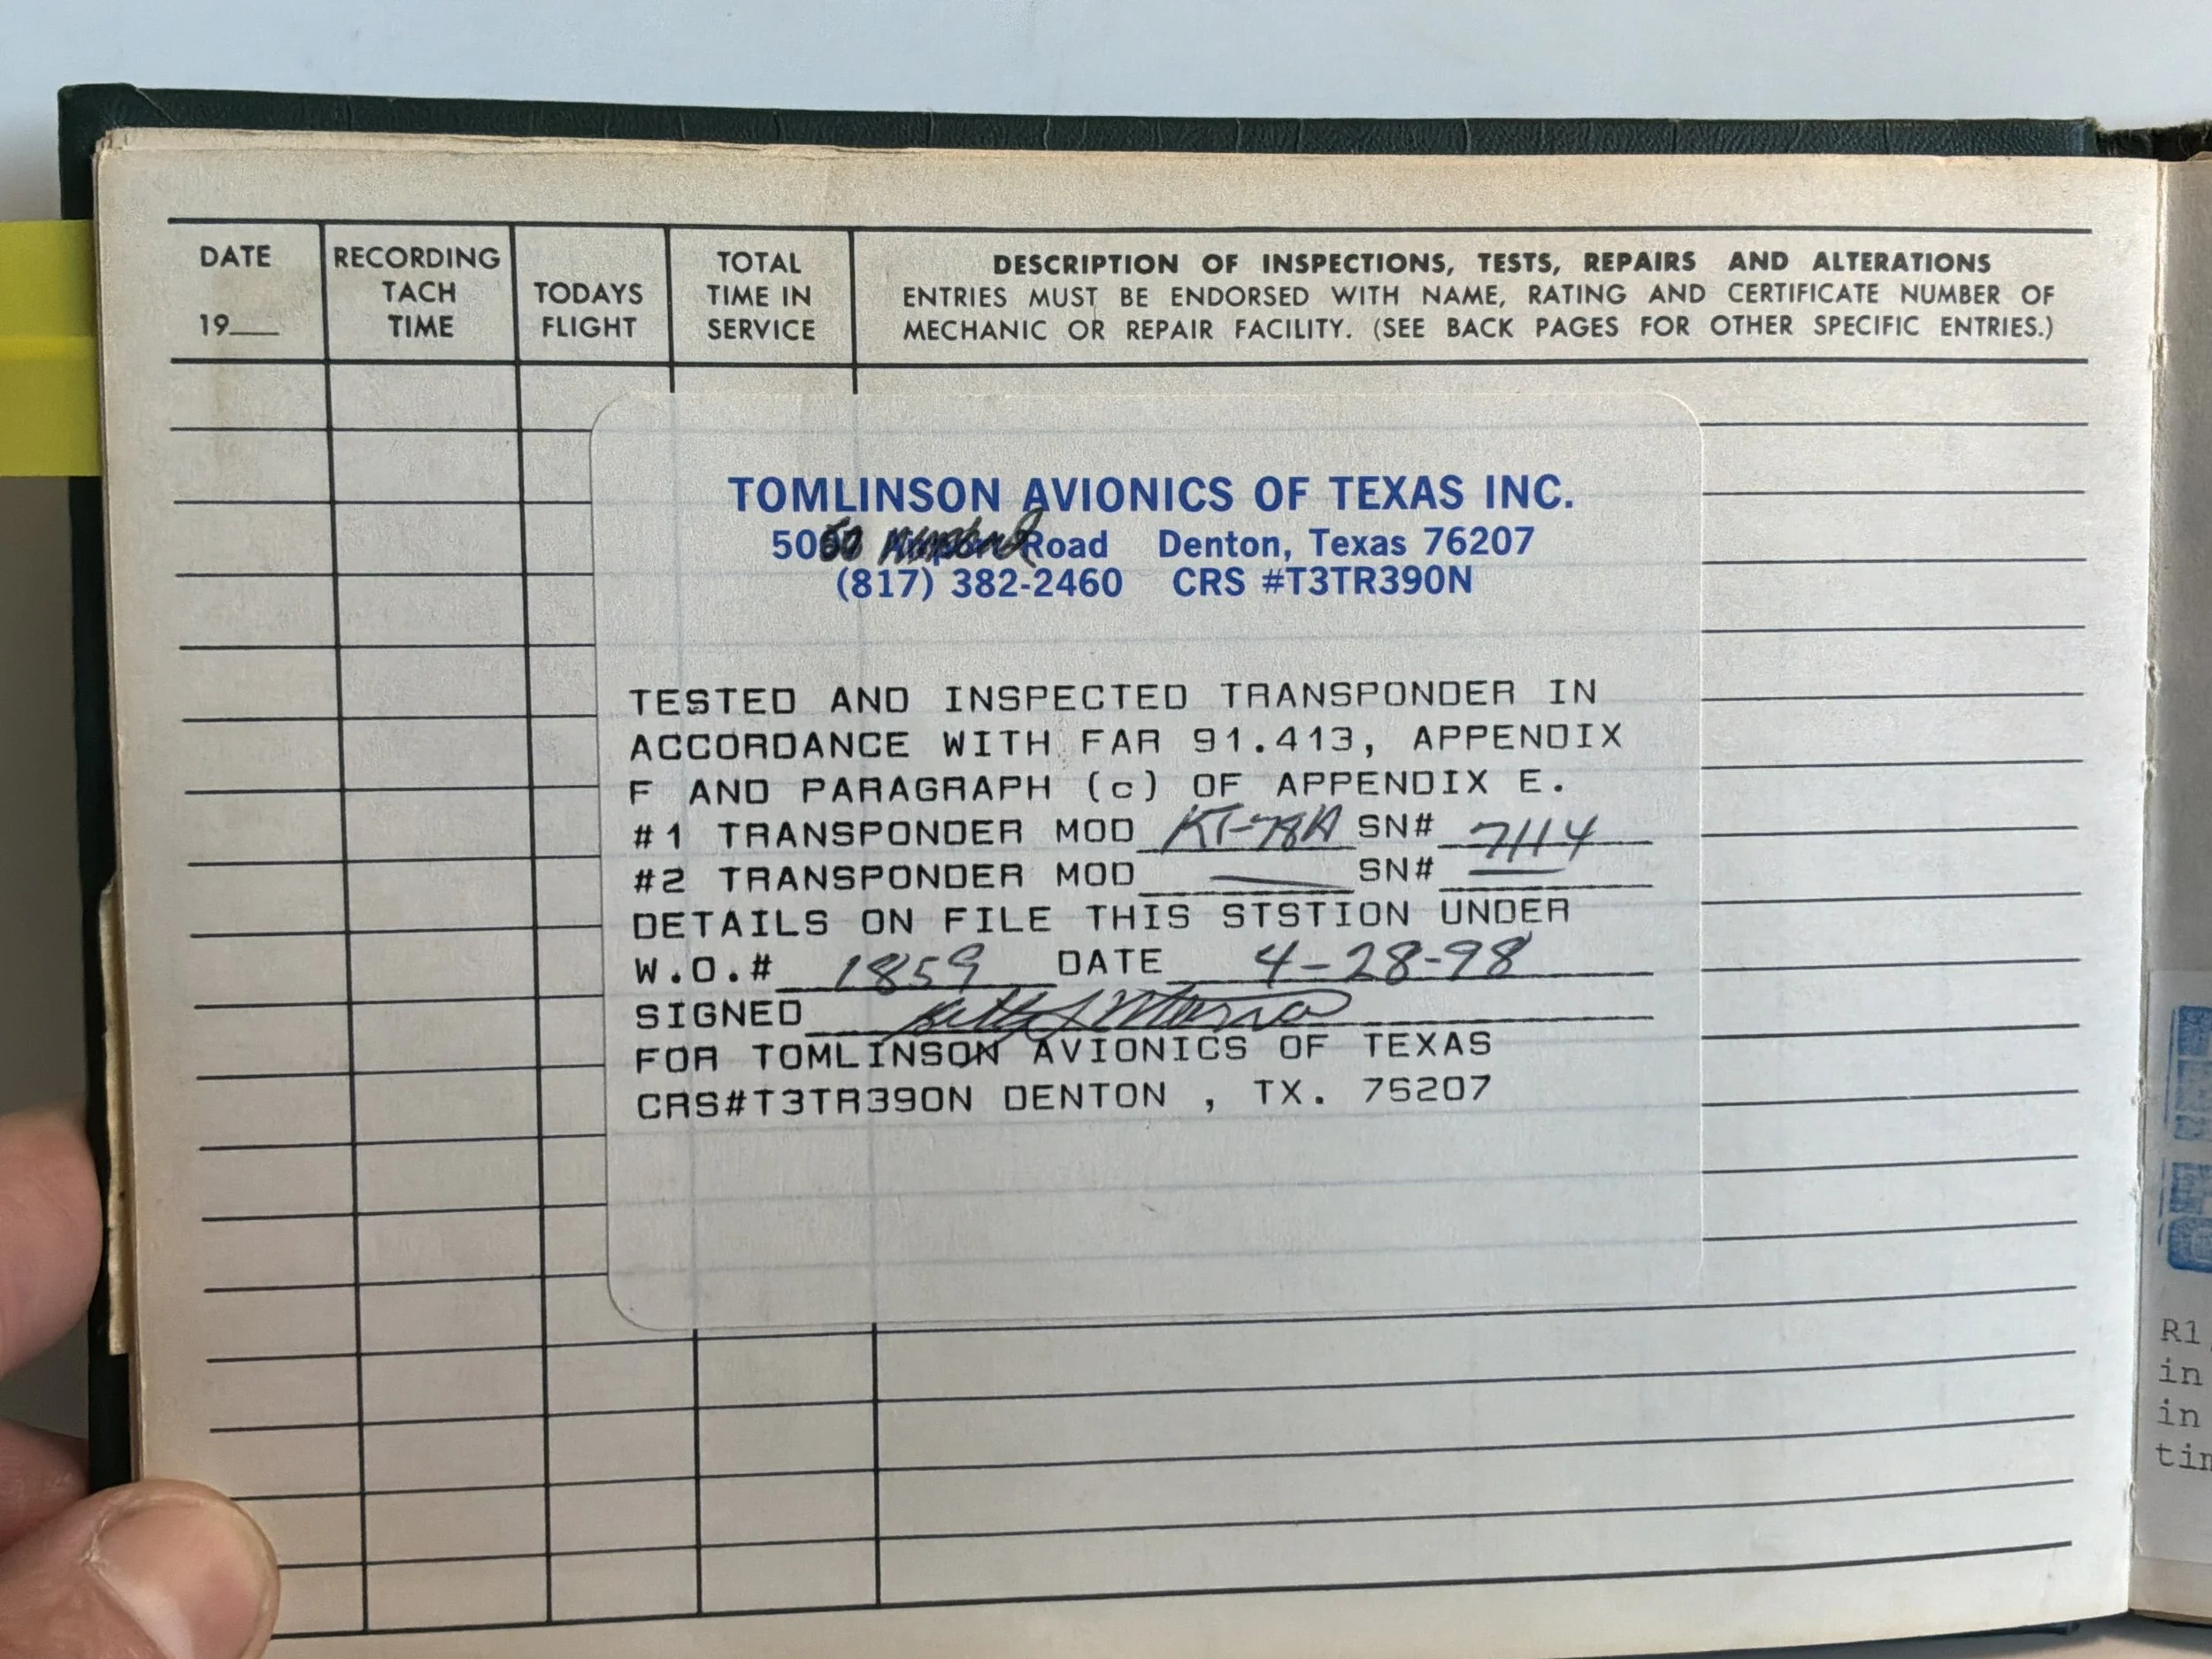 DATE
19___
RECORDING
TACH
TIME
TODAYS
FLIGHT
TOTAL
TIME IN
SERVICE
DESCRIPTION OF INSPECTIONS, TESTS, REPAIRS AND ALTERATIONS
ENTRIES MUST BE ENDORSED WITH NAME, RATING AND CERTIFICATE NUMBER OF
MECHANIC OR REPAIR FACILITY. (SEE BACK PAGES FOR OTHER SPECIFIC ENTRIES.)
TOMLINSON AVIONICS OF TEXAS INC.
Road Denton, Texas 76207
(817) 382-2460 CRS #T3TR390N
TESTED AND INSPECTED TRANSPONDER IN
ACCORDANCE WITH FAR 91.413, APPENDIX
F AND PARAGRAPH (c) OF APPENDIX E.
#1 TRANSPONDER MOD KT-78A SN# 7114
#2 TRANSPONDER MOD — SN# —
DETAILS ON FILE THIS STSTION UNDER
W.O.# 1859 DATE 4-28-98
SIGNED
FOR TOMLINSON AVIONICS OF TEXAS
CRS#T3TR390N DENTON , TX. 75207
R1
in
in